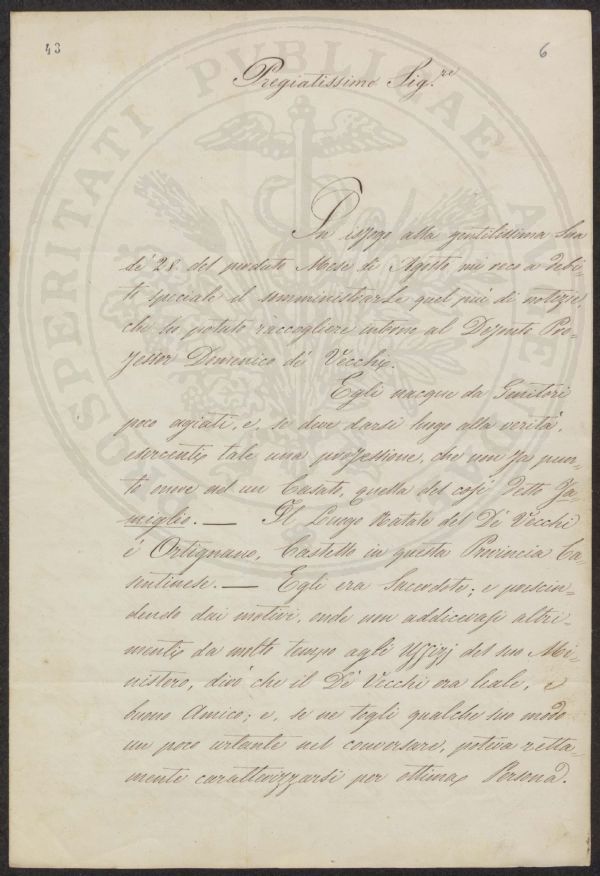 43
6
Pregiatissimo Sig.re
In isfogo alla gentilissima Sua
de' 28. del perduto Mese di Agosto mi reco a debi-
to speciale il somministrarLe quel più di notizie,
che ho potuto raccogliere intorno al Defonto Pro-
fessor Domenico de' Vecchi.
Egli nacque da Genitori
poco agiati, e, se deve darsi luogo alla verità,
esercenti tale una professione, che non fa pun-
to onore ad un Casato, quella del così detto Fa-
miglio. — Il Luogo Natale del De' Vecchi
é Ortignano, Castello in questa Provincia Ca-
sentinese. — Egli era Sacerdote; e prescin-
dendo dai motivi, onde non addicevasi altri-
menti da molto tempo agli Uffizj del suo Mi-
nistero, dirò che il De' Vecchi era leale, e
buono Amico; e, se ne togli qualche suo modo
un poco urtante nel conversare, poteva retta-
mente caratterizzarsi per ottima Persona.
PROSPERITATI PVBLICAE AVGENDAE